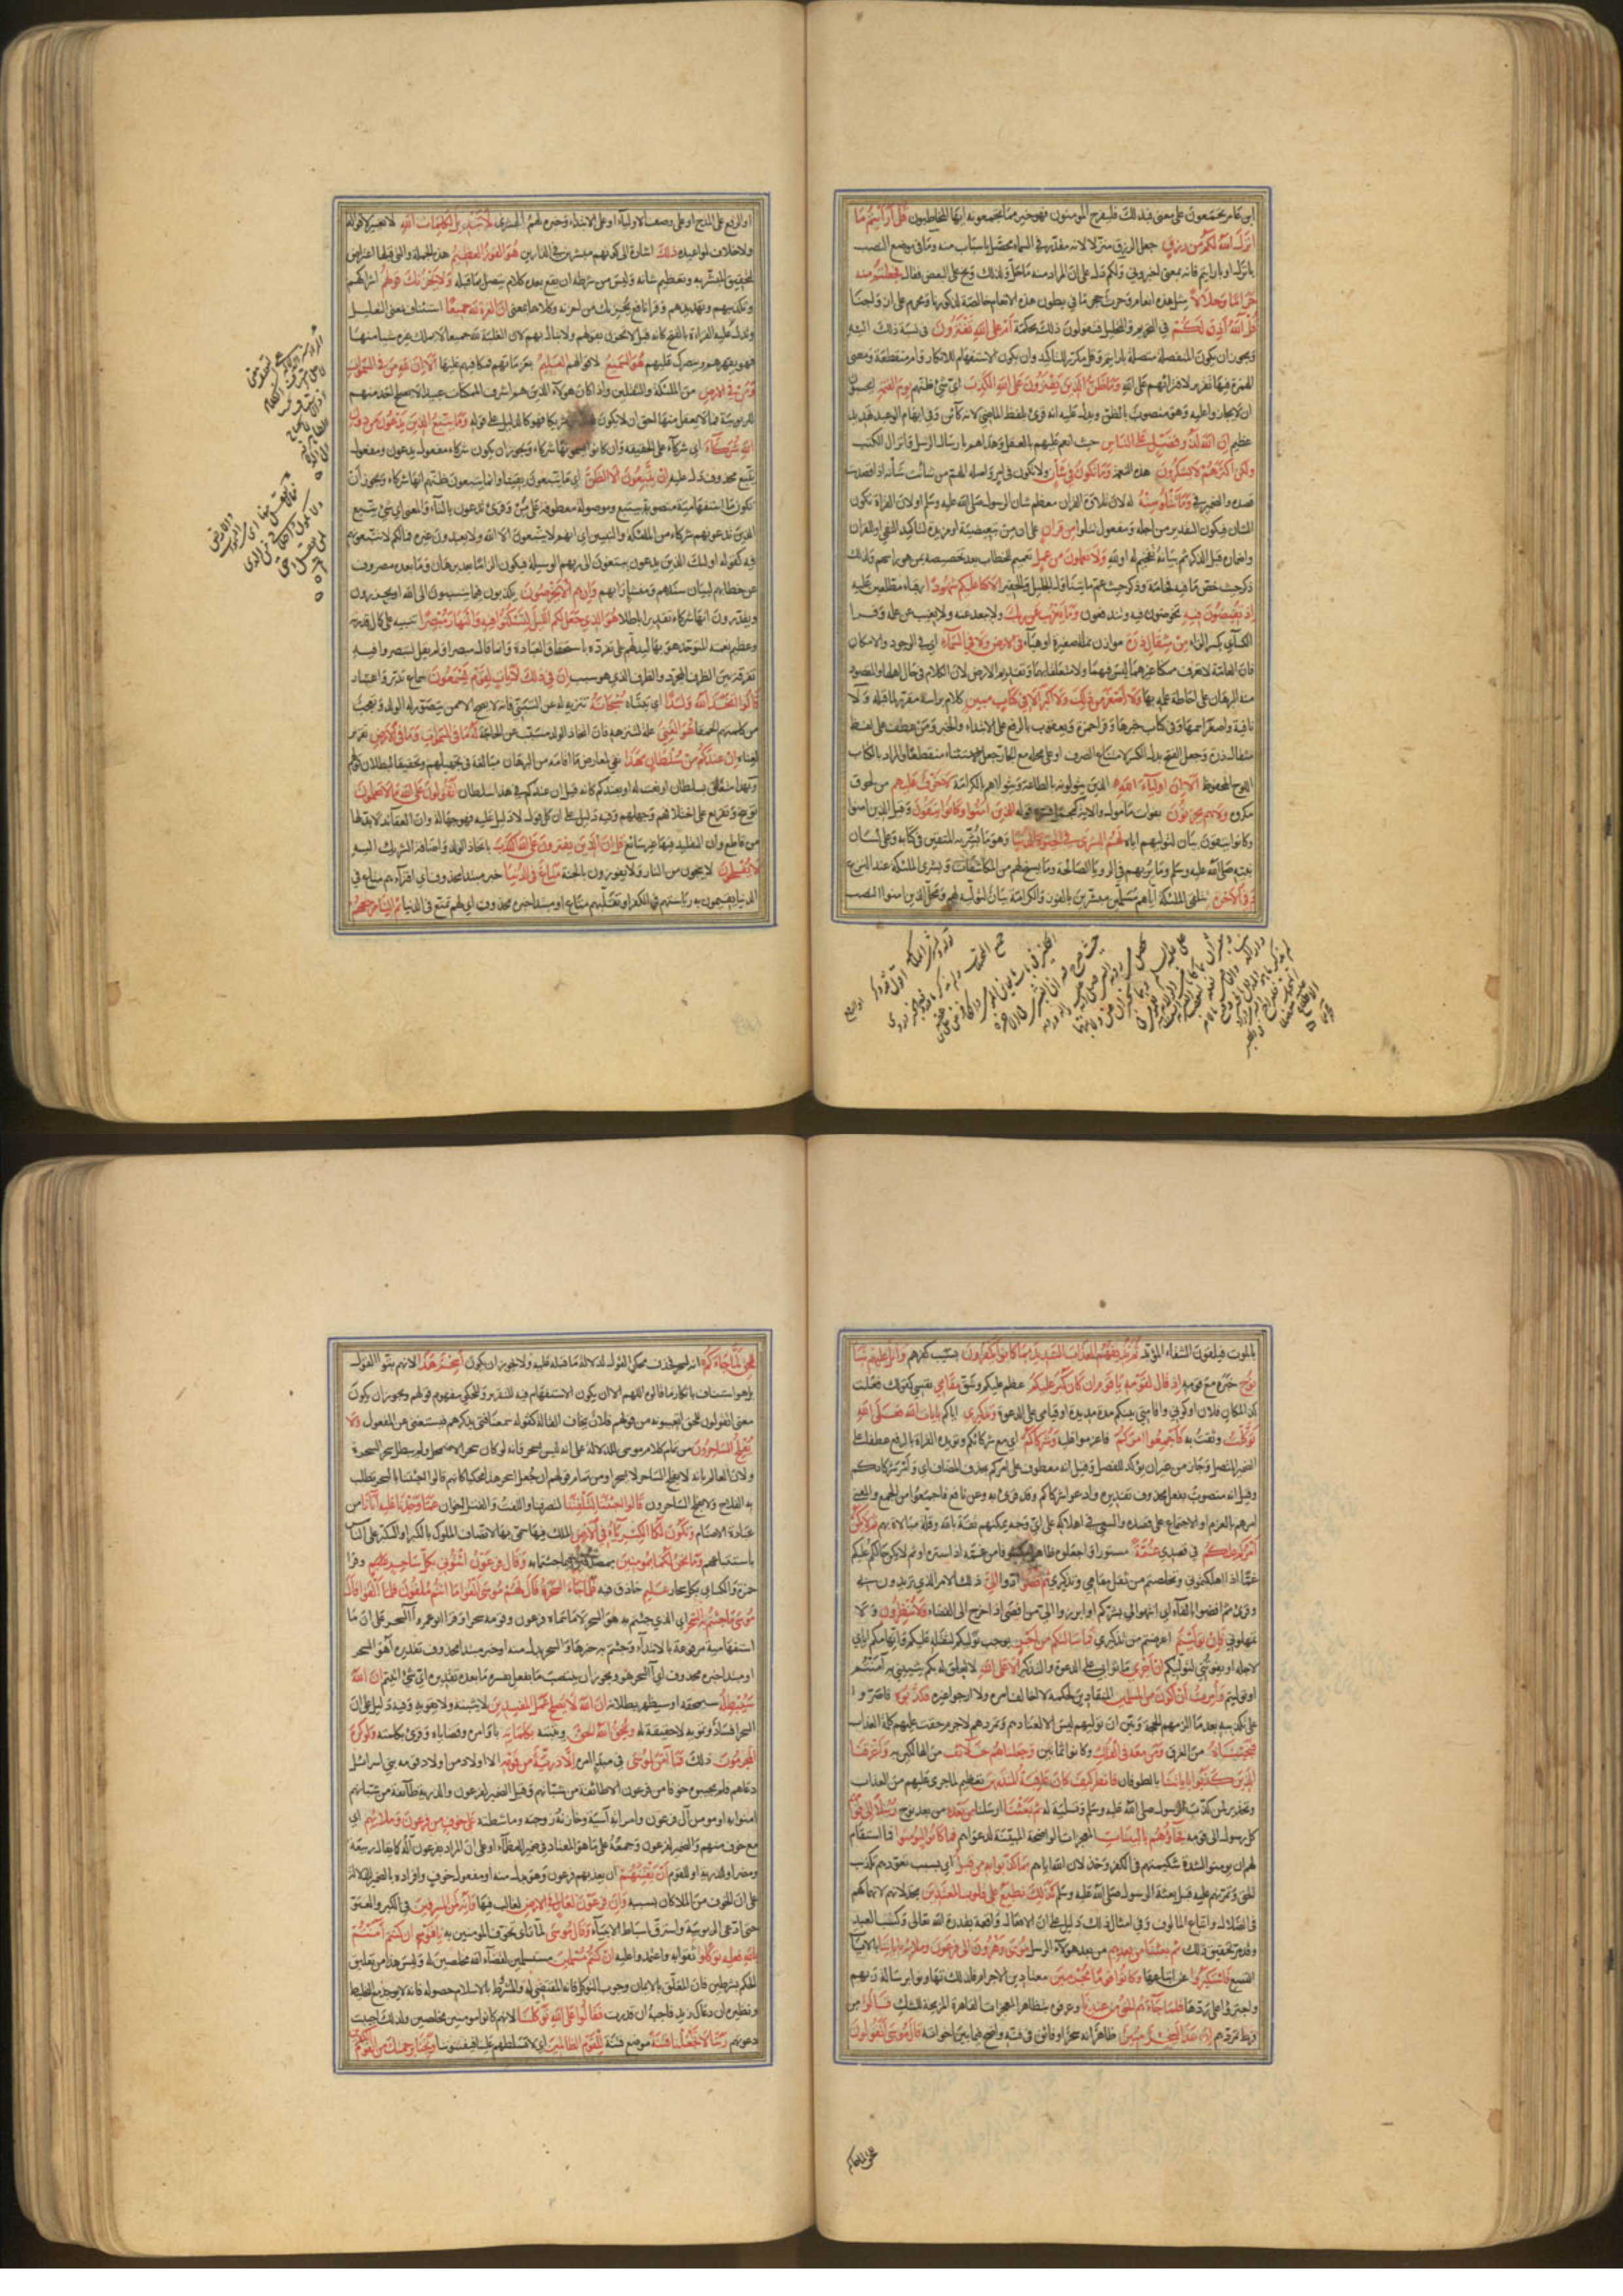 ابن عامر تجمعون على معنى فبذلك فليفرح المؤمنون فهو خير مما تجمعونه ايها المخاطبون قل ارايتم ما
انزل الله لكم من رزق جعل الرزق منزلا لانه مقدر في السماء محصل باسباب منه وما في موضع النصب
بانزل او بارايتم فانه بمعنى اخبروني ولكم دل على ان المراد منه ما حل ولذلك وبخ على التبعيض فقال فجعلتم منه
حراما وحلالا مثل هذه انعام وحرث حجر ما في بطون هذه الانعام خالصة لذكورنا ومحرم على ازواجنا
قل آلله اذن لكم في التحريم والتحليل فتقولون ذلك بحكمه ام على الله تفترون في نسبة ذلك اليه
ويجوز ان يكون المنفصلة متصلة بارايتم وقل مكرر للتاكيد وان يكون الاستفهام للانكار وام منقطعة ومعنى
الهمزة فيها تقرير لافترائهم على الله وما ظن الذين يفترون على الله الكذب اي شيء ظنهم يوم القيمة ايحسبون
ان لا يجازوا عليه وهو منصوب بالظن ويدل عليه انه قرئ بلفظ الماضي لانه كائن وفي ابهام الوعيد تهديد
عظيم ان الله لذو فضل على الناس حيث انعم عليهم بالعقل وهداهم بارسال الرسل وانزال الكتب
ولكن اكثرهم لا يشكرون هذه النعمة وما تكون في شأن ولا تكون في امر واصله الهمز من شانت شأنه اذا قصدت
قصده والضمير في وما تتلو منه له لان تلاوة القران معظم شان الرسول صلى الله عليه وسلم او لان القراة تكون
لشان فيكون التقدير من اجله ومفعول تتلو من قران على ان من تبعيضية او مزيدة لتاكيد النفي او للقران
واضماره قبل الذكر ثم بيانه تفخيم له او لله ولا تعملون من عمل تعميم للخطاب بعد تخصيصه بمن هو راسهم ولذلك
ذكر حيث خص ما فيه فخامة وذكر حيث عم ما يتناول الجليل والحقير الا كنا عليكم شهودا رقباء مطلعين عليه
اذ تفيضون فيه تخوضون فيه وتندفعون وما يعزب عن ربك ولا يبعد عنه ولا يغيب عن علمه وقرا
الكسائي بكسر الزاء من مثقال ذرة موازن نملة صغيرة او هباء في الارض ولا في السماء اي في الوجود والامكان
فان العامة لا تعرف ممكنا غيرهما ليس فيهما ولا متعلقا بهما وتقديم الارض لان الكلام في حال اهلها والمقصود
منه البرهان على احاطة علمه بها ولا اصغر من ذلك ولا اكبر الا في كتاب مبين كلام براسه مقرر لما قبله ولا
نافية واصغر اسمها وفي كتاب خبرها وقرا حمزة ويعقوب بالرفع على الابتداء والخبر ومن عطف على لفظ
مثقال ذرة وجعل الفتح بدل الكسر لامتناع الصرف او على محله مع الجار جعل الاستثناء منقطعا والمراد بالكتاب
اللوح المحفوظ الا ان اولياء الله الذين يتولونه بالطاعة ويتولاهم بالكرامة لا خوف عليهم من لحوق
مكروه ولا هم يحزنون بفوات مامول والاية كمجمل فسره قوله الذين آمنوا وكانوا يتقون وقيل الذين امنوا
وكانوا يتقون بيان لتوليهم اياه لهم البشرى في الحيوة الدنيا وهو ما بشر به المتقين في كتابه وعلى لسان
نبيه صلى الله عليه وسلم وما يريهم في الرؤيا الصالحة وما يسنح لهم من المكاشفات وبشرى الملئكة عند النزع
وفي الآخرة بتلقي الملئكة اياهم مسلمين مبشرين بالفوز والكرامة بيان لتوليه لهم ومحل الذين امنوا النصب
او الرفع على المدح او على وصف الاولياء او على الابتداء وخبره لهم البشرى لا تبديل لكلمات الله لا تغيير لاقواله
ولا اخلاف لمواعيده ذلك اشارة الى كونهم مبشرين في الدارين هو الفوز العظيم هذه الجملة والتي قبلها اعتراض
لتحقيق المبشر به وتعظيم شانه وليس من شرطه ان يقع بعده كلام يتصل بما قبله ولا يحزنك قولهم اشراكهم
وتكذيبهم وتهديدهم وقرا نافع يحزنك من احزنه وكلاهما بمعنى ان العزة لله جميعا استئناف بمعنى التعليل
ويدل عليه القراءة بالفتح كانه قيل لا تحزن بقولهم ولا تبال بهم لان الغلبة لله جميعا لا يملك غيره شيئا منها
فهو يقهرهم وينصرك عليهم هو السميع لاقوالهم العليم بعزماتهم فيكافيهم عليها الا ان لله من في السموات
ومن في الارض من الملئكة والثقلين واذا كان هؤلاء الذين هم اشرف الممكنات عبيدا لا يصلح احد منهم
للربوبية فما لا يعقل منها احق ان لا يكون شريكا فهو كالدليل على قوله وما يتبع الذين يدعون من دون
الله شركاء اي شركاء على الحقيقة وان كانوا يسمونها شركاء ويجوز ان يكون شركاء مفعول يدعون ومفعول
يتبع محذوف دل عليه ان يتبعون الا الظن اي ما يتبعون يقينا وانما يتبعون ظنهم انها شركاء ويجوز ان
تكون ما استفهامية منصوبة بيتبع وموصولة معطوفة على من وقرئ تدعون بالتاء والمعنى اي شيء يتبع
الذين تدعونهم شركاء من الملئكة والنبيين اي انهم لا يتبعون الا الله ولا يعبدون غيره فما لكم لا تتبعونهم
فيه كقوله اولئك الذين يدعون يبتغون الى ربهم الوسيلة فيكون الزاما بعد برهان وما بعده مصروف
عن خطابهم لبيان سندهم ومنشا رايهم وان هم الا يخرصون يكذبون فيما ينسبون الى الله او يحزرون
ويقدرون انها شركاء تقديرا باطلا هو الذي جعل لكم الليل لتسكنوا فيه والنهار مبصرا تنبيه على كمال قدرته
وعظيم نعمته المتوحد هو بها ليدلهم على تفرده باستحقاق العبادة وانما قال مبصرا ولم يقل لتبصروا فيه
تفرقة بين الظرف المجرد والظرف الذي هو سبب ان في ذلك لآيات لقوم يسمعون سماع تدبر واعتبار
قالوا اتخذ الله ولدا اي تبناه سبحانه تنزيه له عن التبني فانه لا يصح الا ممن يتصور له الولد وتعجب
من كلمتهم الحمقا هو الغني علة لتنزهه فان اتخاذ الولد مسبب عن الحاجة له ما في السموات وما في الارض تقرير
لغناه ان عندكم من سلطان بهذا نفي لمعارض ما اقامه من البرهان مبالغة في تجهيلهم وتحقيقا لبطلان قولهم
وبهذا متعلق بسلطان او نعت له او بعندكم كانه قيل ان عندكم في هذا سلطان تقولون على الله ما لا تعلمون
توبيخ وتقريع على اختلاقهم وجهلهم وفيه دليل على ان كل قول لا دليل عليه فهو جهالة وان العقائد لا بد لها
من قاطع وان التقليد فيها غير سائغ قل ان الذين يفترون على الله الكذب باتخاذ الولد واضافة الشريك اليه
لا يفلحون لا ينجون من النار ولا يفوزون بالجنة متاع في الدنيا خبر مبتدا محذوف اي افتراؤهم متاع في
الدنيا يقيمون به رياستهم في الكفر او تقلبهم متاع او مبتدا خبره محذوف اي لهم تمتع في الدنيا ثم الينا مرجعهم
بالموت فيلقون الشقاء المؤبد ثم نذيقهم العذاب الشديد بما كانوا يكفرون بسبب كفرهم واتل عليهم نبأ
نوح خبره مع قومه اذ قال لقومه يا قوم ان كان كبر عليكم عظم عليكم وشق مقامي نفسي كقولك فعلت
كذا لمكان فلان او كوني واقامتي بينكم مدة مديدة او قيامي على الدعوة وتذكيري اياكم بايات الله فعلى الله
توكلت وثقت به فاجمعوا امركم فاعزموا عليه وشركاءكم اي مع شركائكم ويؤيده القراة بالرفع عطفا على
الضمير المتصل وجاز من غير ان يؤكد للفصل وقيل انه معطوف على امركم بحذف المضاف اي وامر شركائكم
وقيل انه منصوب بفعل محذوف تقديره وادعوا شركاءكم وقد قرئ به وعن نافع فاجمعوا من الجمع والمعنى
امرهم بالعزم او الاجتماع على قصده والسعي في اهلاكه على اي وجه يمكنهم ثقة بالله وقلة مبالاة بهم ثم لا يكن
امركم عليكم في قصدي غمة مستورا واجعلوه ظاهرا مكشوفا من غمه اذا ستره او ثم لا يكن حالكم عليكم
غما اذا اهلكتموني وتخلصتم من ثقل مقامي وتذكيري ثم اقضوا ادوا الي ذلك الامر الذي تريدون بي
وقرئ ثم افضوا بالفاء اي انتهوا الي بشركم او ابرزوا الي من افضى اذا خرج الى الفضاء ولا تنظرون ولا
تمهلوني فان توليتم اعرضتم عن تذكيري فما سالتكم من اجر يوجب توليكم لثقله عليكم واتهامكم اياي
لاجله او يفوتني لتوليكم ان اجري ما ثوابي على الدعوة والتذكير الا على الله لا تعلق له بكم يثيبني به آمنتم
او توليتم وامرت ان اكون من المسلمين المنقادين لحكمه لا اخالف امره ولا ارجو غيره فكذبوه فاصروا
على تكذيبه بعد ما الزمهم الحجة وبين ان توليهم ليس الا لعنادهم وتمردهم لا جرم حقت عليهم كلمة العذاب
فنجيناه من الغرق ومن معه في الفلك وكانوا ثمانين وجعلناهم خلائف من الهالكين به واغرقنا
الذين كذبوا باياتنا بالطوفان فانظر كيف كان عاقبة المنذرين تعظيم لما جرى عليهم من العذاب
وتحذير لمن كذب الرسول صلى الله عليه وسلم وتسلية له ثم بعثنا ارسلنا من بعده من بعد نوح رسلا الى قومهم
كل رسول الى قومه فجاؤهم بالبينات بالمعجزات الواضحة المثبتة لدعواهم فما كانوا ليؤمنوا فما استقام
لهم ان يومنوا لشدة شكيمتهم في الكفر وخذلان الله اياهم بما كذبوا به من قبل اي بسبب تعودهم تكذيب
الحق وتمرنهم عليه قبل بعثة الرسول صلى الله عليه وسلم كذلك نطبع على قلوب المعتدين بخذلانهم لانهماكهم
في الضلال واتباع المالوف وفي امثال ذلك دليل على ان الافعال واقعة بقدرة الله تعالى وكسب العبد
وقد مر تحقيق ذلك ثم بعثنا من بعدهم من بعد هؤلاء الرسل موسى وهرون الى فرعون وملائه باياتنا بالايات
التسع فاستكبروا عن اتباعهما وكانوا قوما مجرمين معتادين الاجرام فلذلك تهاونوا برسالة ربهم
واجترؤا على ردها فلما جاءهم الحق من عندنا وعرفوه بتظاهر المعجزات القاهرة المزيحة للشك قالوا من
فرط تمردهم ان هذا لسحر مبين ظاهر انه سحر او فائق في فنه واضح فيما بين اخوانه قال موسى اتقولون
للحق لما جاءكم انه لسحر فحذف محكي القول لدلالة ما قبله عليه ولا يجوز ان يكون اسحر هذا لانهم بتوا القول
بل هو استئناف بانكار ما قالوه اللهم الا ان يكون الاستفهام فيه للتقرير والمحكي مفهوم قولهم ويجوز ان يكون
معنى اتقولون للحق اتعيبونه من قولهم فلان يخاف القالة كقوله سمعنا فتى يذكرهم فيستغنى عن المفعول ولا
يفلح الساحرون من تمام كلام موسى للدلالة على انه ليس بسحر فانه لو كان سحرا لاضمحل ولم يبطل سحر السحرة
ولان العالم بانه لا يفلح الساحر لا يسحر او من تمام قولهم ان جعل اسحر هذا محكيا كانهم قالوا اجئتنا بالسحر تطلب
به الفلاح ولا يفلح الساحرون قالوا اجئتنا لتلفتنا لتصرفنا واللفت والفتل اخوان عما وجدنا عليه آباءنا من
عبادة الاصنام وتكون لكما الكبرياء في الارض الملك فيها سمي بها لاتصاف الملوك بالكبر او التكبر على الناس
باستتباعهم وما نحن لكما بمومنين بمصدقين فيما جئتما به وقال فرعون ائتوني بكل ساحر عليم وقرا
حمزة والكسائي بكل سحار عليم حاذق فيه فلما جاء السحرة قال لهم موسى القوا ما انتم ملقون فلما القوا قال
موسى ما جئتم به السحر اي الذي جئتم به هو السحر لا ما سماه فرعون وقومه سحرا وقرا ابو عمرو آلسحر على ان ما
استفهامية مرفوعة بالابتداء وجئتم به خبرها وآلسحر بدل منه او خبر مبتدا محذوف تقديره اهو السحر
او مبتدا خبره محذوف اي آلسحر هو ويجوز ان ينتصب ما بفعل يفسره ما بعده تقديره اي شيء اتيتم ان الله
سيبطله سيمحقه او سيظهر بطلانه ان الله لا يصلح عمل المفسدين لا يثبته ولا يقويه وفيه دليل على ان
السحر افساد وتمويه لا حقيقة له ويحق الله الحق ويثبته بكلماته باوامره وقضاياه وقرئ بكلمته ولو كره
المجرمون ذلك فما آمن لموسى في مبدا امره الا ذرية من قومه الا اولاد من اولاد قومه بني اسرائيل
دعاهم فلم يجيبوه خوفا من فرعون الا طائفة من شبانهم وقيل الضمير لفرعون والذرية طائفة من شبانهم
امنوا به او مومن آل فرعون وامراته آسية وخازنه وزوجته وماشطته على خوف من فرعون وملائهم اي
مع خوف منهم والضمير لفرعون وجمعه على ما هو المعتاد في ضمير العظماء او على ان المراد بفرعون آله كما يقال ربيعة
ومضر او للذرية او للقوم ان يفتنهم ان يعذبهم فرعون وهو بدل منه او مفعول خوف وافراده بالضمير للدلالة
على ان الخوف من الملا كان بسببه وان فرعون لعال في الارض لغالب فيها وانه لمن المسرفين في الكبر والعتو
حتى ادعى الربوبية واسترق اسباط الانبياء وقال موسى لما راى تخوف المومنين به يا قوم ان كنتم آمنتم
بالله فعليه توكلوا فثقوا به واعتمدوا عليه ان كنتم مسلمين مستسلمين لقضاء الله مخلصين له وليس هذا من تعليق
الحكم بشرطين فان المعلق بالايمان وجوب التوكل فانه المقتضي له والمشروط بالاسلام حصوله فانه لا يوجد مع التخليط
ونظيره ان دعاك زيد فاجبه ان قدرت فقالوا على الله توكلنا لانهم كانوا مومنين مخلصين ولذلك اجيبت
دعوتهم ربنا لا تجعلنا فتنة موضع فتنة للقوم الظالمين اي لا تسلطهم علينا فيفتنونا ونجنا برحمتك من القوم